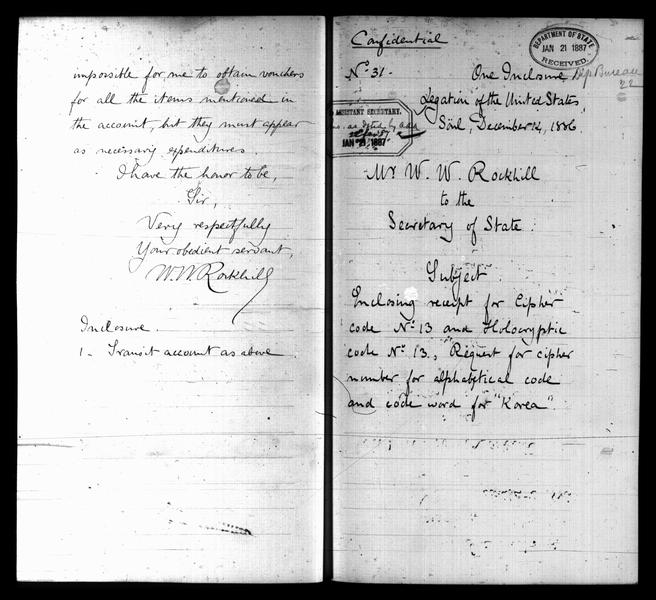 impossible for me to obtain vouchers
for all the items mentioned in
the account, but they must appear
as necessary expenditures.
I have the honor to be,
Sir,
Very respectfully
Your obedient servant,
W. W. Rockhill
Inclosure.
1 - Transit account as above
Confidential
DEPARTMENT OF STATE
JAN 21 1887
RECEIVED.
Nº 31-
One Inclosure
Dip Bureau
22
Legation of the United States
Söul, December 14, 1886
ASSISTANT SECRETARY.
JAN 21 1887
Mr W. W. Rockhill
to the
Secretary of State.
Subject
Enclosing receipt for Cipher
code Nº 13 and Holocryptic
code Nº 13., Request for cipher
number for alphabetical code
and code word for "Korea"